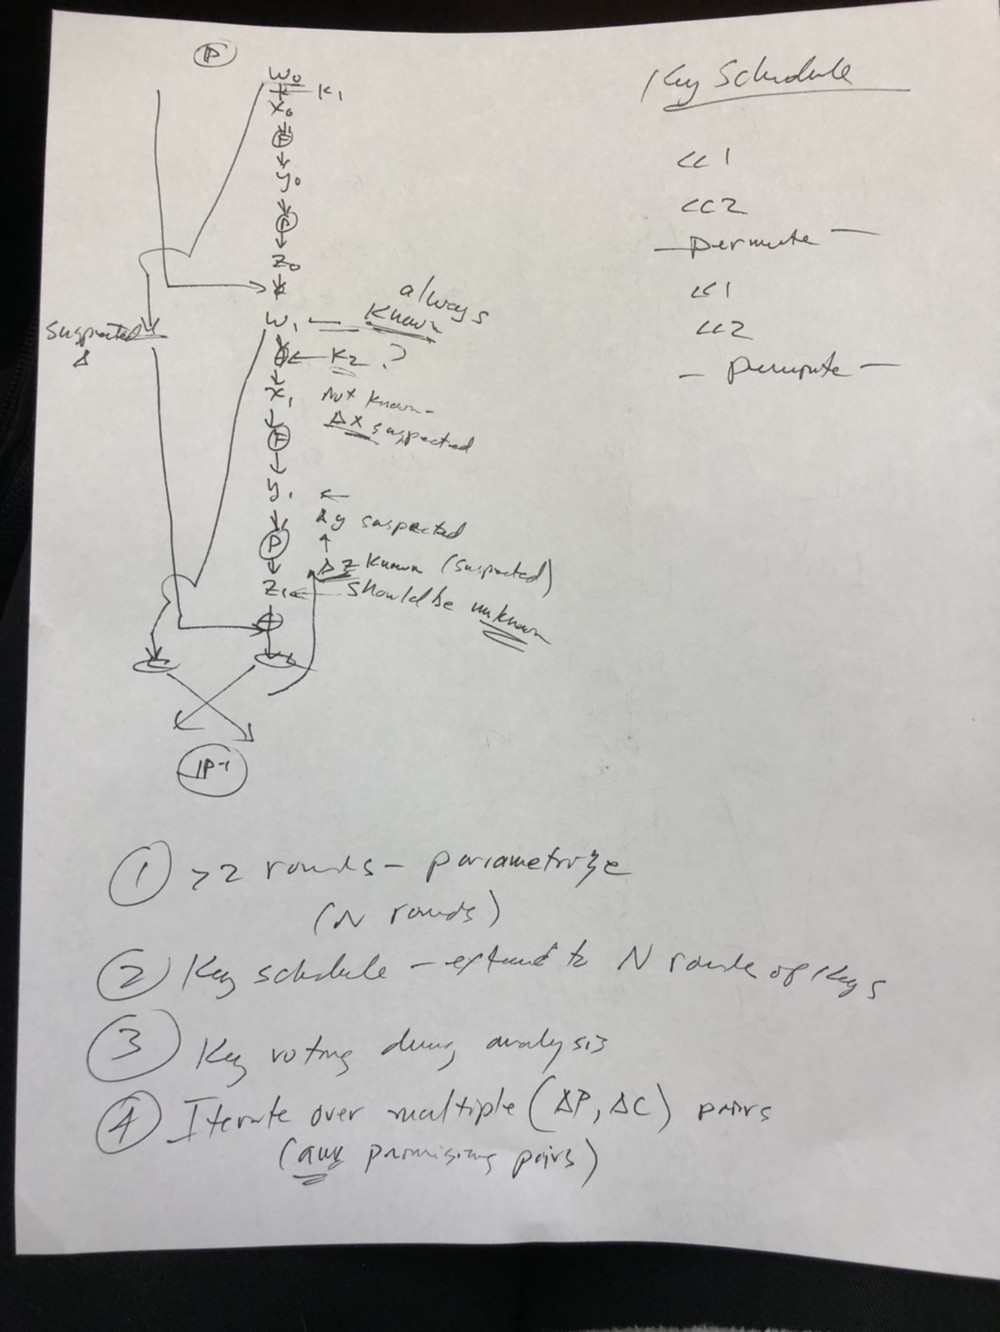 P
W0
K1
X0
F
y0
P
Z0
always
W1 ← Known
suspected
Δ
← K2 ?
X1 Not known -
ΔX suspected
F
y1 ←
Δy suspected
P
ΔZ Known (suspected)
Z1 ← should be unknown
IP-1
Key Schedule
<<1
<<2
— permute —
<<1
<<2
— permute —
① >2 rounds - parametrize
(N rounds)
② Key schedule - extend to N rounds of keys
③ Key voting during analysis
④ Iterate over multiple (ΔP, ΔC) pairs
(any promising pairs)